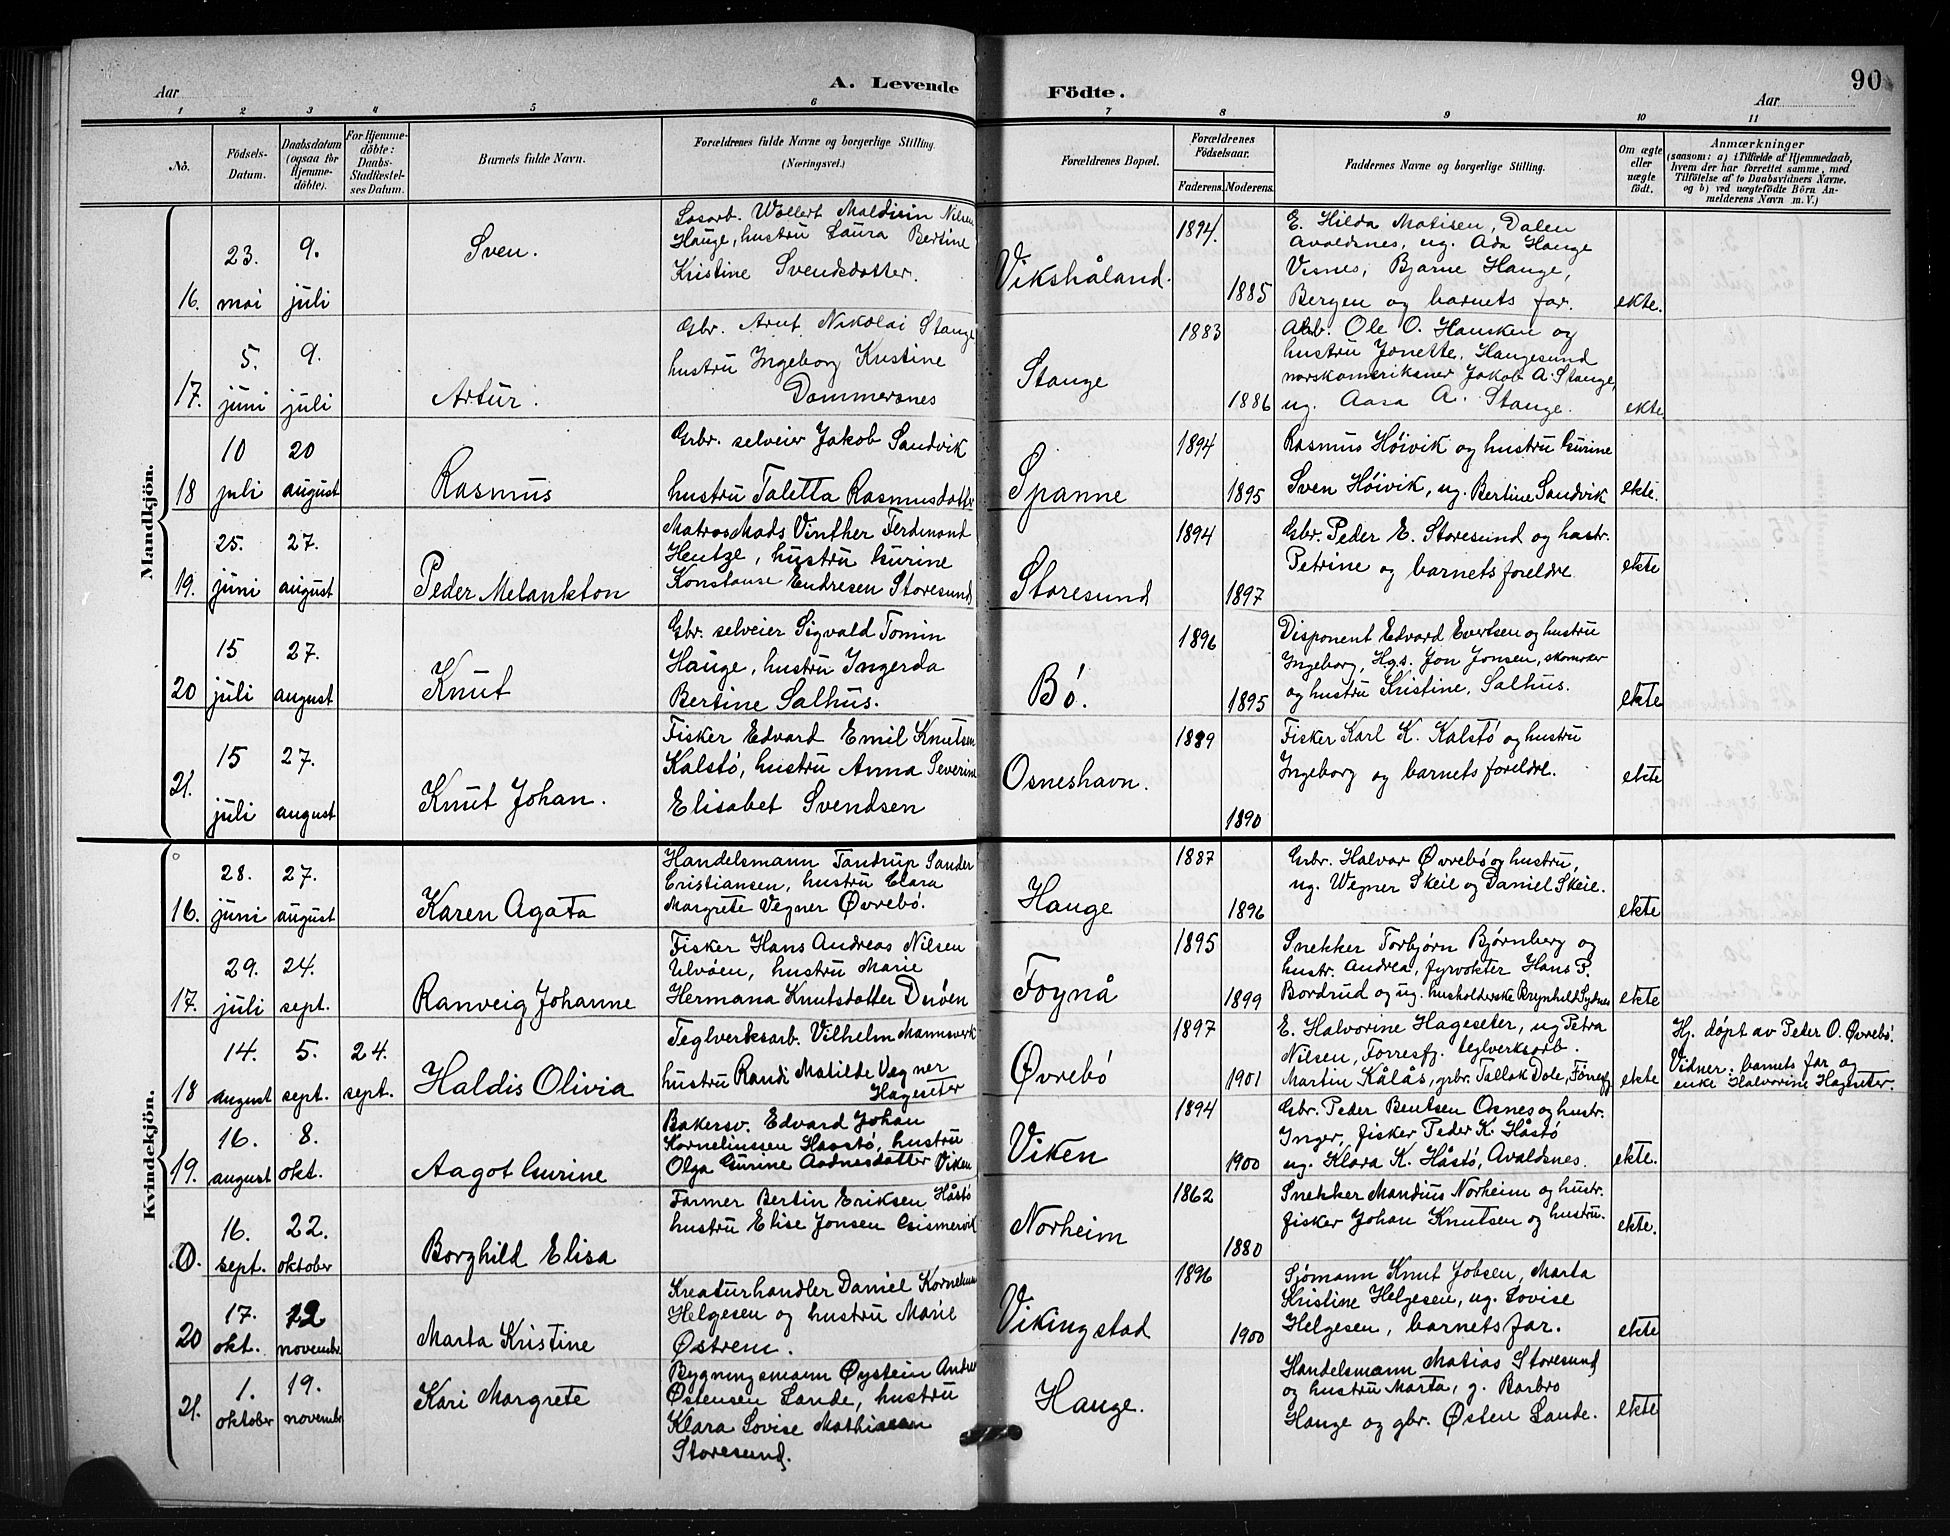 A. Levende Födte.
90
Aar
Aar
1 2 3 4 5 6 7 8 9 10 11
No.
Födsels-Datum.
Daabsdatum (ogsaa for Hjemmedöbte).
For Hjemmedöbte: Daabs-Stadfæstelses Datum.
Barnets fulde Navn.
Forældrenes fulde Navne og borgerlige Stilling. (Næringsvei.)
Forældrenes Bopæl.
Forældrenes Födselsaar.
Faderens. Moderens.
Faddernes Navne og borgerlige Stilling.
Om ægte eller uægte födt.
Anmærkninger
(saasom: a) i Tilfælde af Hjemmedaab,
hvem der har forrettet samme, med
Tilföielse af to Daabsvidners Navne.
og b) ved uægtefödte Börn An-
melderens Navn m. V.)
Mandkjön.
16. 23. mai
9. juli
Sven.
Løsarb. Wollert Maldivin Nilsen
Hauge, hustru Laura Bertine
Kristine Svendsdotter.
Vikshåland.
1894.
1885
E. Hilda Matisen, Dalen
Avaldsnes, ug. Ada Hauge
Visnes, Bjarne Hauge,
Bergen og barnets far.
ekte.
17. 5. juni
9. juli
Artur.
Gbr. Arnt Nikolai Stange
hustru Ingeborg Kristine
Dommersnes
Stange
1883
1886
Arb. Ole O. Hausken og
hustru Jonette, Haugesund
norskamerikaner Jakob A. Stange,
ug. Aasa A. Stange.
ekte.
18 10 juli
20 august
Rasmus
Grbr. selveier Jakob Sandvik
hustru Taletta Rasmusdotter
Spanne
1894
1895
Rasmus Høivik og hustru Gurine
Sven Høivik, ug. Bertine Sandvik
ekte.
19. 25. juni
27. august
Peder Melankton
Matros Mads Vinther Ferdinand
Hentze, hustru Gurine
Konstanse Endresen Storesund
Storesund
1894
1897
Gbr. Peder E. Storesund og hustr.
Petrine og barnets foreldre
ekte
20 15 juli
27. august
Knut
Gbr. selveier Sigvald Tomin
Hauge, hustru Ingerda
Bertine Salhus.
Bó.
1896
1895
Disponent Edvard Evertsen og hustru
Ingeborg, Hgs. Jon Jonsen, skomaker
og hustru Kristine, Salhus.
ekte
21. 15 juli
27. august
Knut Johan.
Fisker Edvard Emil Knutsen
Kalstó, hustru Anna Severine
Elisabet Svendsen
Osneshavn.
1889
1890
Fisker Karl K. Kalstó og hustru
Ingeborg og barnets foreldre.
ekte
Kvindekjön.
16. 28. juni
27. august
Karen Agata
Handelsmann Tandrup Sander
Cristiansen, hustru Clara
Margrete Vegner Øvrebó.
Hauge
1887
1896
Grbr. Halvar Øvrebó og hustru,
ug. Wegner Skeie og Daniel Skeie.
ekte
17. 29. juli
24. sept.
Ranveig Johanne
Fisker Hans Andreas Nilsen
Ulvóen, hustru Marie
Hermana Knutsdotter Duóen
Foynå
1895
1899
Snekker Torbjørn Bjørnberg og
hustr. Andrea, fyrvokter Hans P.
Bordrud og ug. husholderske Brynhild Sydnes
ekte
18 14. august
5. sept.
24. sept.
Haldis Olivia
Teglverksarb. Vilhelm Mannsverk
hustru Randi Matilde Vegner
Hageseter
Øvrebó
1897
1901
E. Halvorine Hageseter, ug Petra
Nilsen, Førresfj. teglverksarb.
Martin Kålås, grbr. Tallak Dale, Førresfj
ekte
Hj. dópt av Peder O. Øvrebó.
Vidner: barnets far og
enke Halvorine Hageseter.
19. 16. august
8. okt.
Aagot Gurine
Bakersv. Edvard Johan
Korneliussen Havstó, hustru
Olga Gurine Aadnesdotter Viken
Viken
1894
1900
Gbr. Peder Bentsen Osnes og hustr.
Inger, fisker Peder K. Håstó
ug. Klara K. Håstó, Avaldsnes.
ekte.
0. 16. sept.
22. oktober
Borghild Elisa
Farmer Bertin Eriksen Håstó
hustru Elise Jonsen Gismervik
Norheim
1862
1880
Snekker Mandius Norheim og hustr.
fisker Johan Knutsen og hustru.
ekte.
20 17. okt.
12 novembr
Marta Kristine
Kreaturhandler Daniel Kornelius
Helgesen og hustru Marie
Østrem.
Vikingstad
1896
1900
Sjómann Knut Jobsen, Marta
Kristine Helgesen, ug. Lovise
Helgesen, barnets far.
ekte
21. 1. oktober
19. novembr
Kari Margrete
Bygningsmann Øystein Andreas
Østensen Lande, hustru
Klara Lovise Mathiassen
Storesund.
Hauge.
Handelsmann Matias Storesund
og hustru Marta, g. Barbro
Hauge og gbr. Østen Lande.
ekte